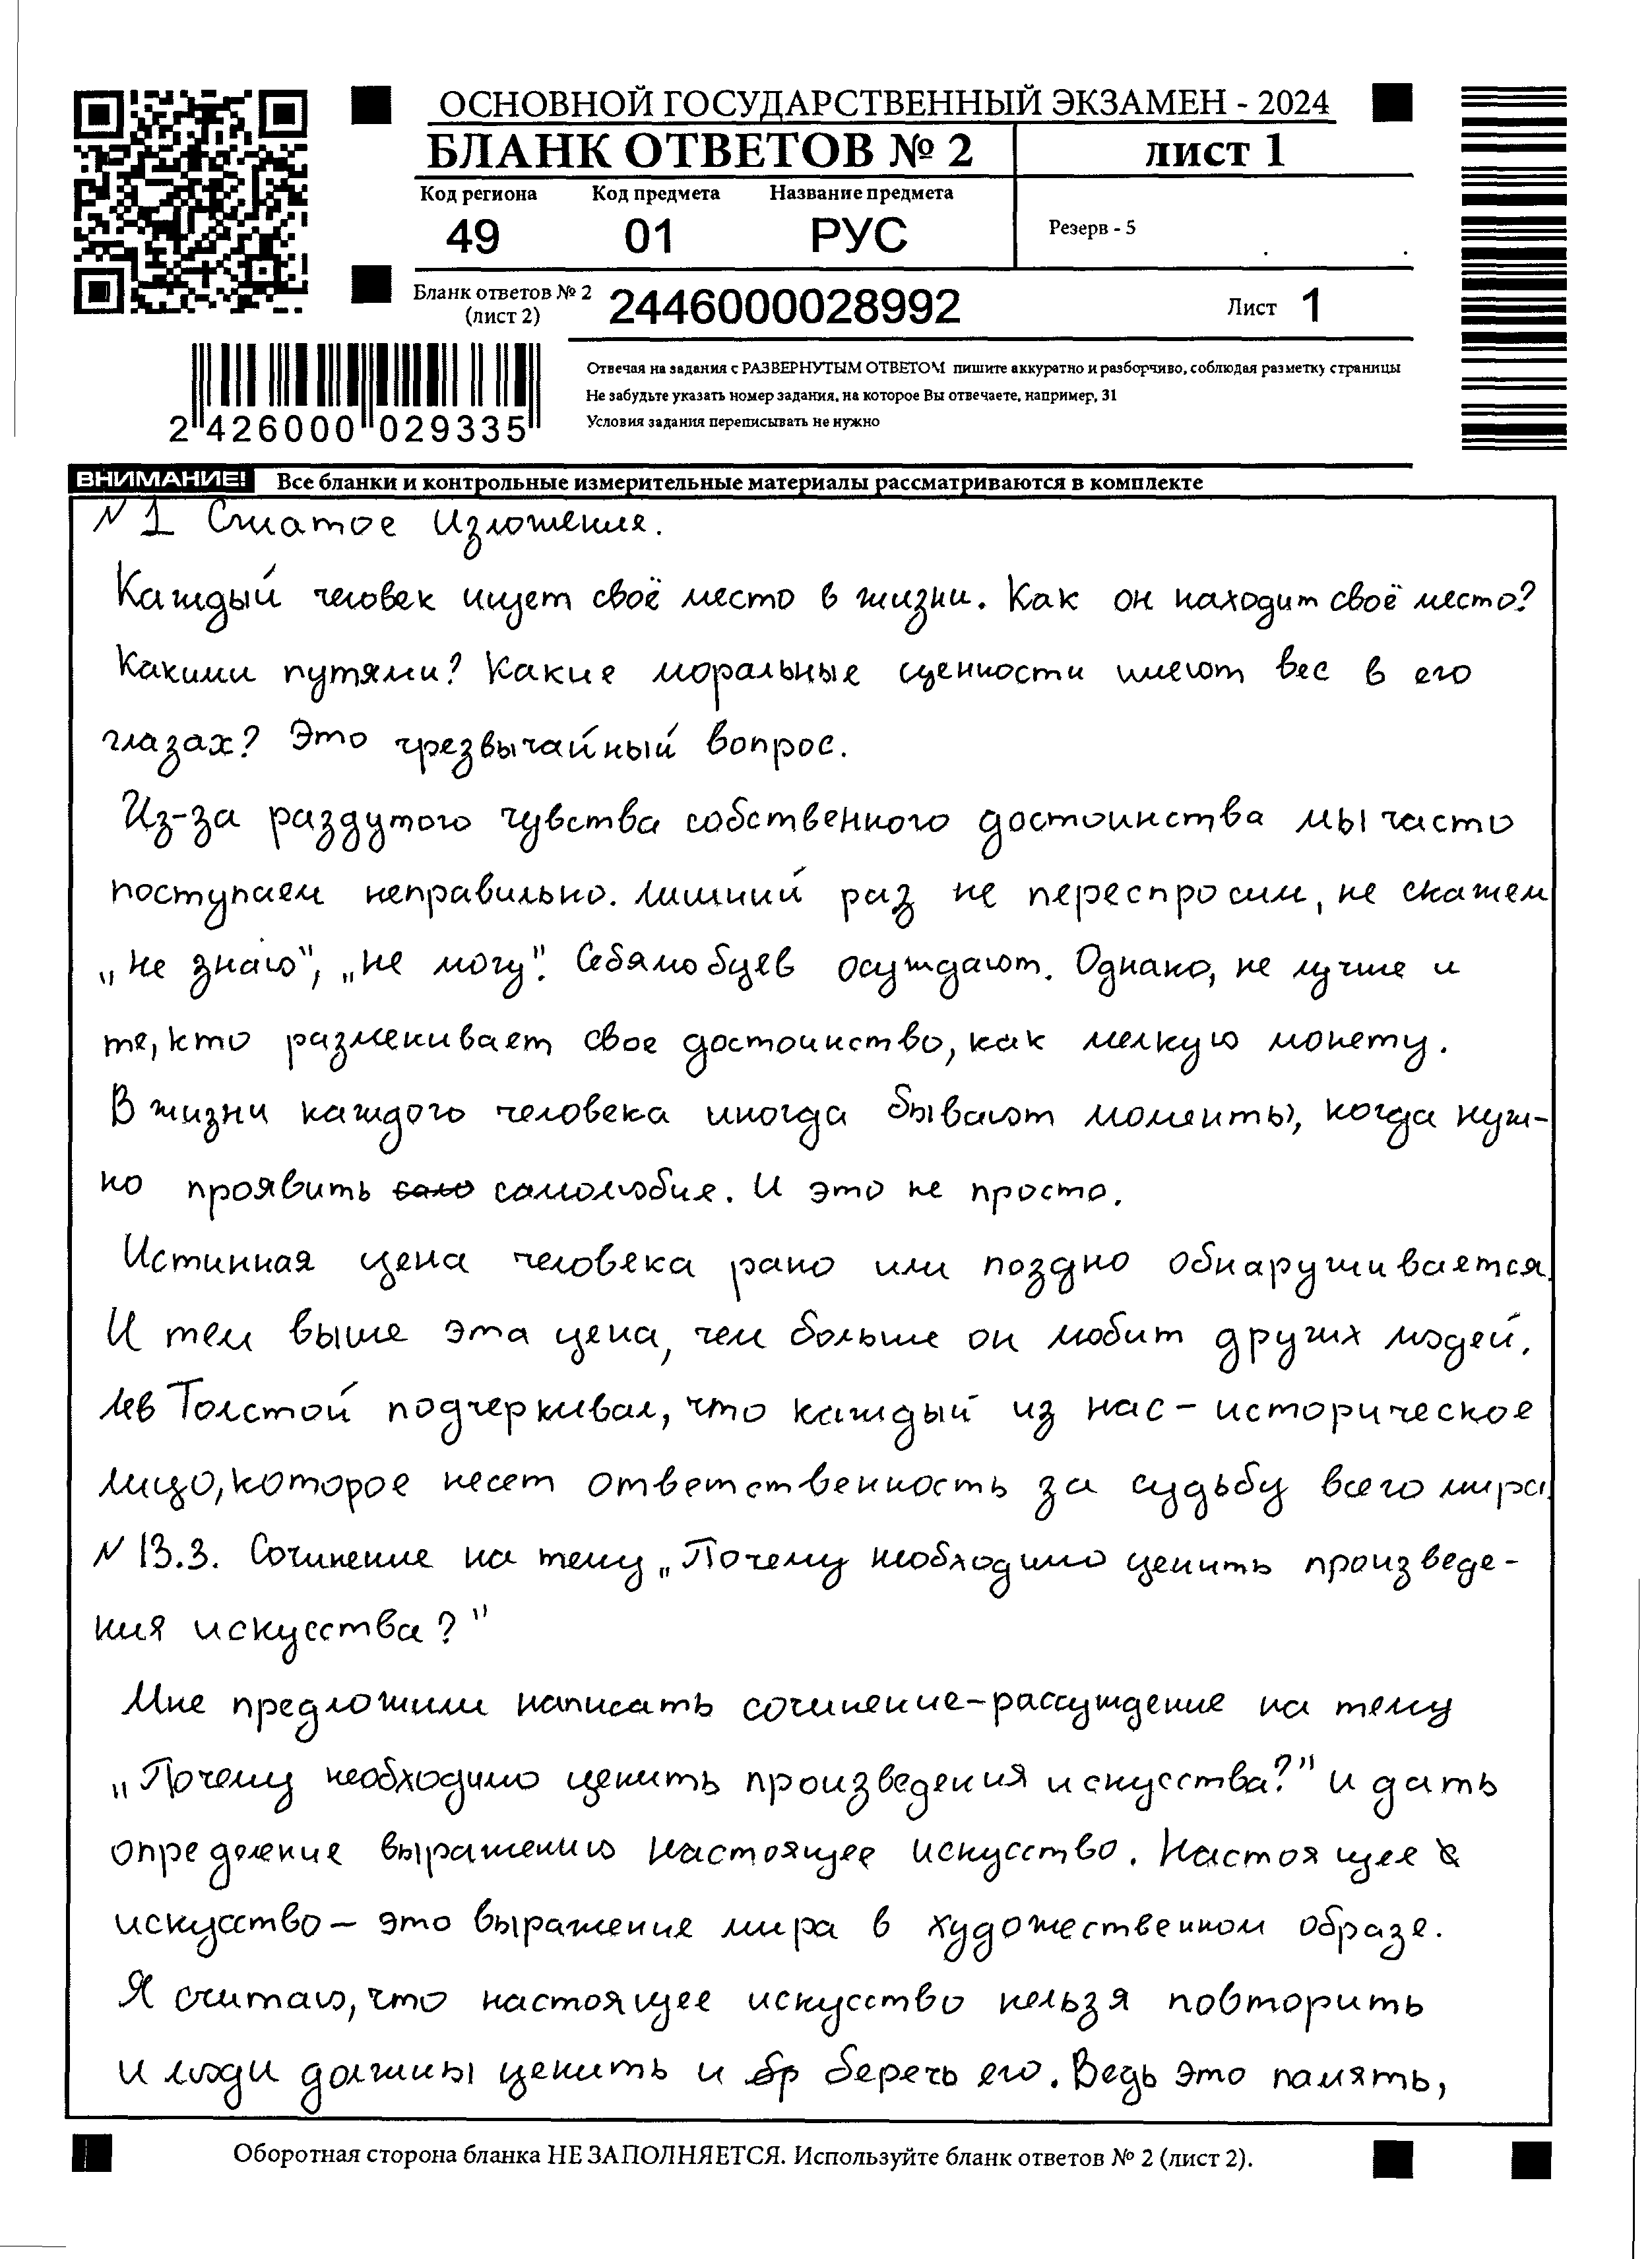 ОСНОВНОЙ ГОСУДАРСТВЕННЫЙ ЭКЗАМЕН - 2024
БЛАНК ОТВЕТОВ № 2
ЛИСТ 1
Код региона Код предмета Название предмета
49 01 РУС
Резерв - 5
Бланк ответов № 2 (лист 2) 2446000028992
Лист 1
2 426000 029335
Отвечая на задания с РАЗВЕРНУТЫМ ОТВЕТОМ пишите аккуратно и разборчиво, соблюдая разметку страницы
Не забудьте указать номер задания, на которое Вы отвечаете, например, 31
Условия задания переписывать не нужно
ВНИМАНИЕ! Все бланки и контрольные измерительные материалы рассматриваются в комплекте
N 1 Сжатое Изложение.
Каждый человек ищет своё место в жизни. Как он находит своё место?
Какими путями? Какие моральные сценности имеют вес в его
глазах? Это чрезвычайный вопрос.
Из-за раздутого чувства собственного достоинства мы часто
поступаем неправильно. Лишний раз не переспросим, не скажем
„не знаю", „не могу". Себялюбцев осуждают. Однако, не лучше и
те, кто разменивает свое достоинство, как мелкую монету.
В жизни каждого человека иногда бывают моменты, когда нуж-
но проявить само самолюбие. И это не просто.
Истинная цена человека рано или поздно обнаруживается.
И тем выше эта цена, чем больше он любит других людей.
Лев Толстой подчеркивал, что каждый из нас – историческое
лицо, которое несет ответственность за судьбу всего мира.
N 13.3. Сочинение на тему „Почему необходимо ценить произведе-
ния искусства?"
Мне предложили написать сочинение-рассуждение на тему
„Почему необходимо ценить произведения искусства?" и дать
определение выражению настоящее искусство. Настоящее
искусство – это выражение мира в художественном образе.
Я считаю, что настоящее искусство нельзя повторить
и люди должны ценить и бр беречь его. Ведь это память,
Оборотная сторона бланка НЕ ЗАПОЛНЯЕТСЯ. Используйте бланк ответов № 2 (лист 2).